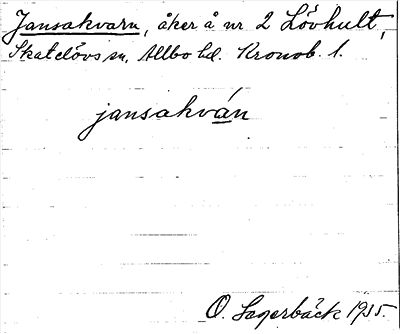 Jansakvarn, åker å nr 2 Lövhult,
Skatelövs sn, Allbo hd. Kronob. l.
jansakván
O. Lagerbäck 1935.